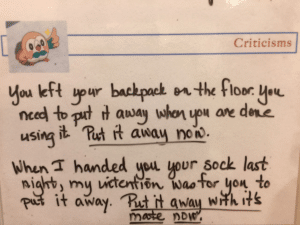 Criticisms
You left your backpack on the floor. You
need to put it away when you are done
using it. Put it away now.
When I handed you your sock last
night, my intention was for you to
put it away. Put it away with it's
mate now.